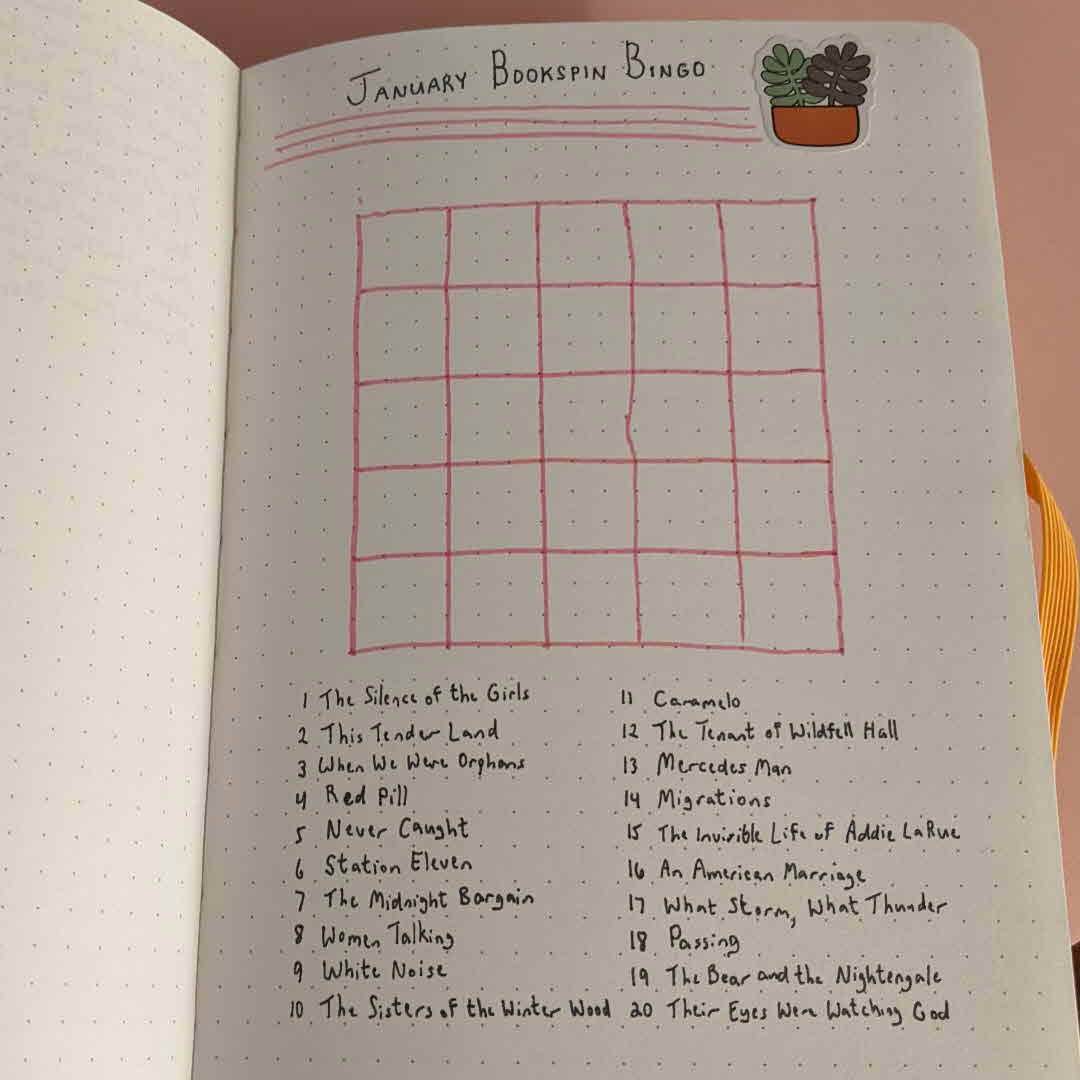 January Bookspin Bingo
1 The Silence of the Girls
2 This Tender Land
3 When We Were Orphans
4 Red Pill
5 Never Caught
6 Station Eleven
7 The Midnight Bargain
8 Women Talking
9 White Noise
10 The Sisters of the Winter Wood
11 Caramelo
12 The Tenant of Wildfell Hall
13 Mercedes Man
14 Migrations
15 The Invisible Life of Addie LaRue
16 An American Marriage
17 What Storm, What Thunder
18 Passing
19 The Bear and the Nightengale
20 Their Eyes Were Watching God